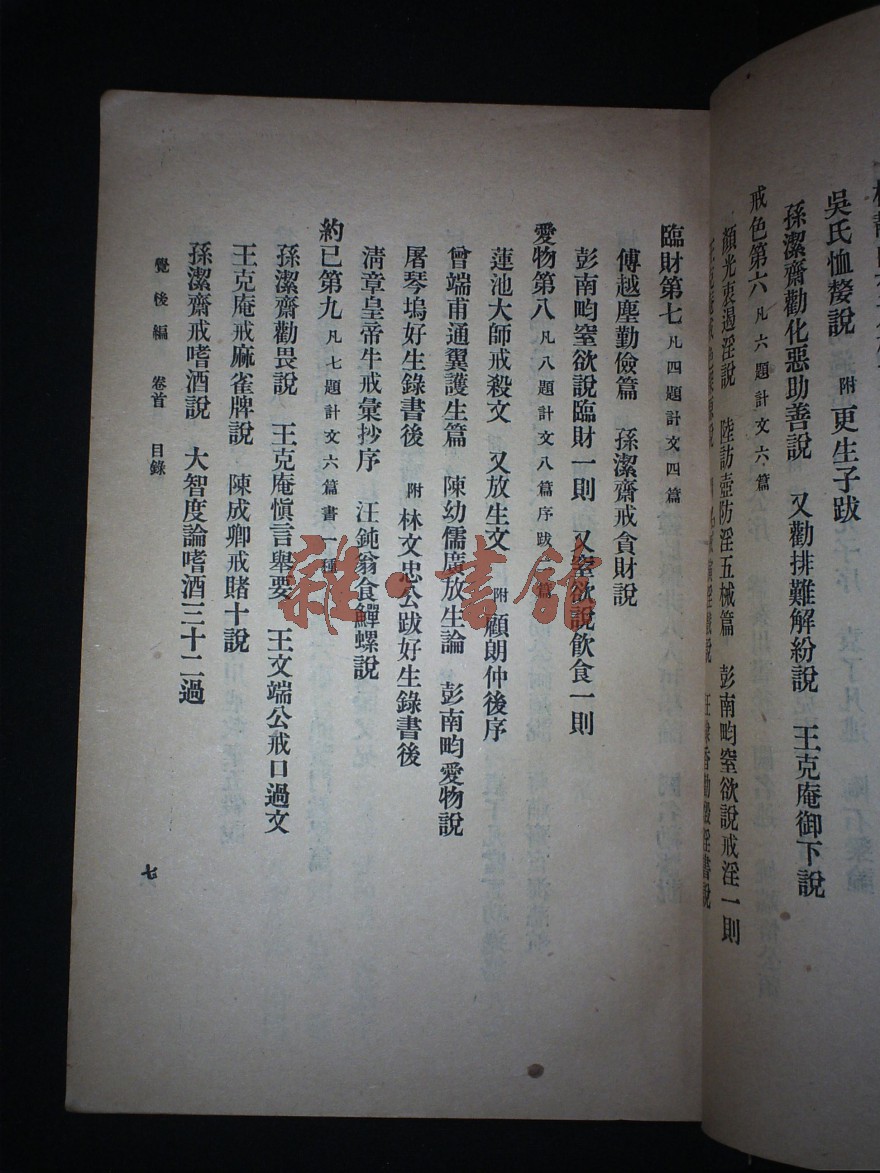 吳氏恤嫠說 附 更生子跋
孫潔齋勸化惡助善說 又勸排難解紛說 王克庵御下說
戒色第六 凡六題計文六篇
顏光衷遏淫說 陸訪壺防淫五械篇 彭南畇窒欲說戒淫一則
臨財第七 凡四題計文四篇
傅越塵勤儉篇 孫潔齋戒貪財說
彭南畇窒欲說臨財一則 又窒欲說飲食一則
愛物第八 凡八題計文八篇序跋 篇
蓮池大師戒殺文 又放生文 附 顧朗仲後序
曾端甫通翼護生篇 陳幼儒廣放生論 彭南畇愛物說
屠琴塢好生錄書後 附 林文忠公跋好生錄書後
淸章皇帝牛戒彙抄序 汪鈍翁食鱓螺說
約已第九 凡七題計文六篇書一種
孫潔齋勸畏說 王克庵愼言舉要 王文端公戒口過文
王克庵戒麻雀牌說 陳成卿戒賭十說
孫潔齋戒嗜酒說 大智度論嗜酒三十二過
覺後編 卷首 目錄
七
雜·書館